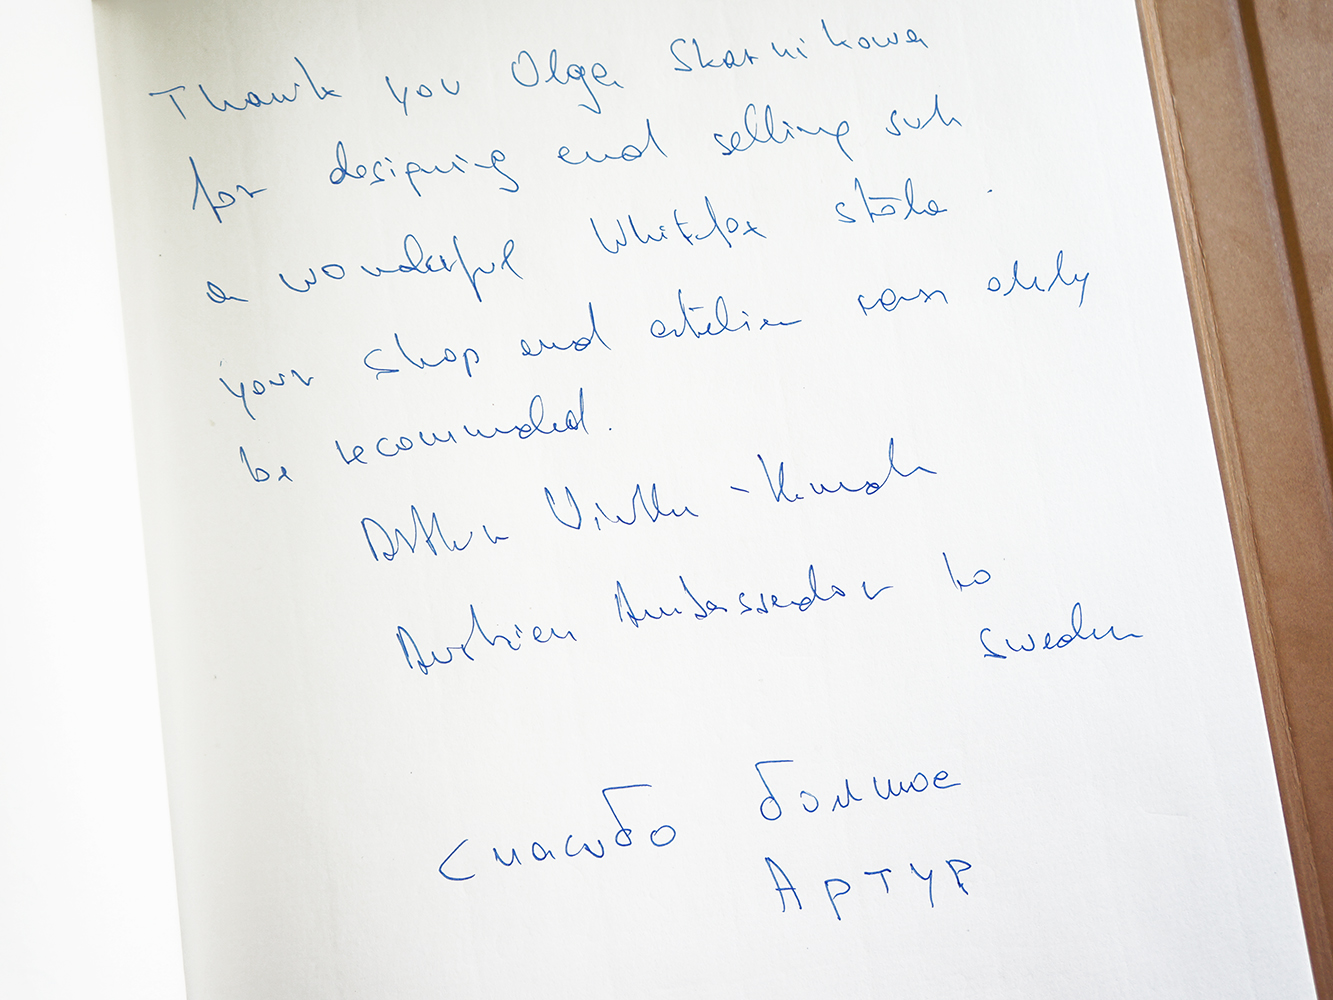 Thank you Olga Skarnikowa
for designing and selling such
a wonderful Whitefox stola.
your shop and atelier can only
be recommended.
Arthur Winkler-Hermaden
Austrian Ambassador to
Sweden
Спасибо большое
Артур